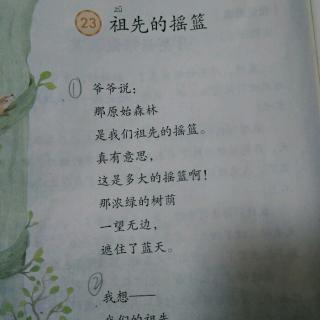 zǔ
23 祖先的摇篮
① 爷爷说：
那原始森林
是我们祖先的摇篮。
真有意思，
这是多大的摇篮啊！
那浓绿的树荫
一望无边，
遮住了蓝天。
② 我想——
我们的祖先